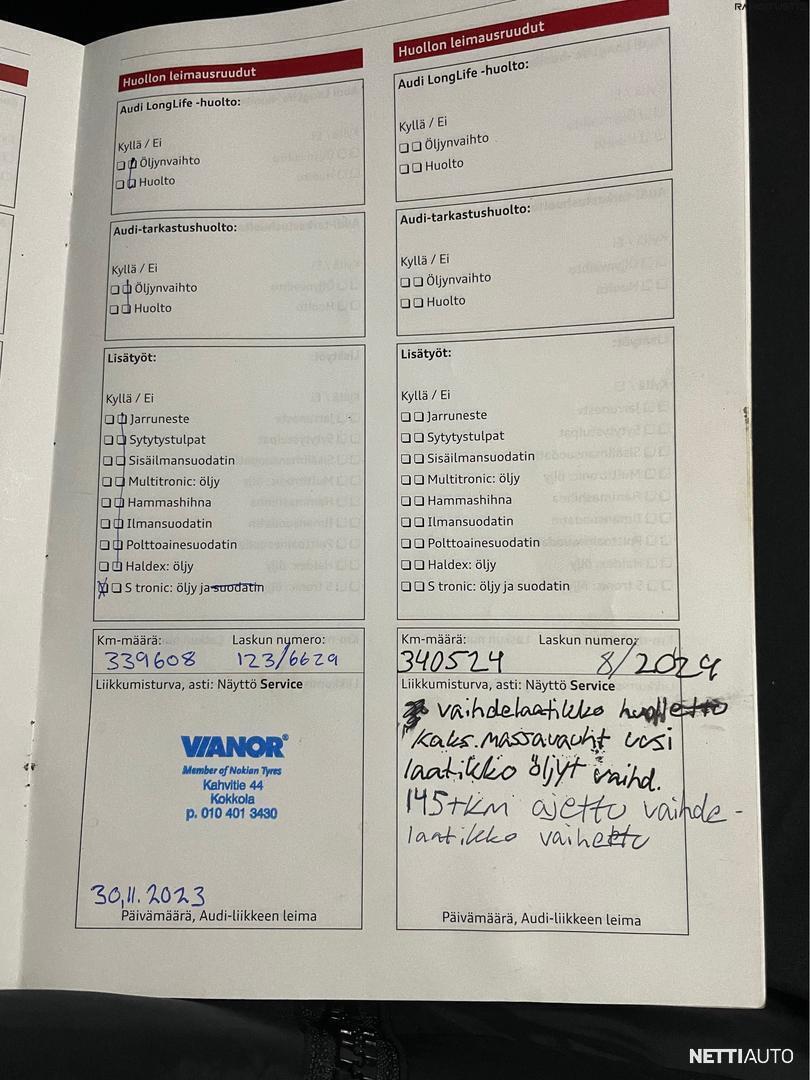 Huollon leimausruudut
Audi LongLife -huolto:
Kyllä / Ei
Öljynvaihto
Huolto
Audi-tarkastushuolto:
Kyllä / Ei
Öljynvaihto
Huolto
Lisätyöt:
Kyllä / Ei
Jarruneste
Sytytystulpat
Sisäilmansuodatin
Multitronic: öljy
Hammashihna
Ilmansuodatin
Polttoainesuodatin
Haldex: öljy
S tronic: öljy ja suodatin
Km-määrä: Laskun numero:
339608 123/6629
Liikkumisturva, asti: Näyttö Service
VIANOR®
Member of Nokian Tyres
Kahvitie 44
Kokkola
p. 010 401 3430
30.11.2023
Päivämäärä, Audi-liikkeen leima
Huollon leimausruudut
Audi LongLife -huolto:
Kyllä / Ei
Öljynvaihto
Huolto
Audi-tarkastushuolto:
Kyllä / Ei
Öljynvaihto
Huolto
Lisätyöt:
Kyllä / Ei
Jarruneste
Sytytystulpat
Sisäilmansuodatin
Multitronic: öljy
Hammashihna
Ilmansuodatin
Polttoainesuodatin
Haldex: öljy
S tronic: öljy ja suodatin
Km-määrä: Laskun numero:
340524 8/2024
Liikkumisturva, asti: Näyttö Service
vaihdelaatikko huollettu
kaks.massavauht uusi
laatikko öljyt vaihd.
145tkm ajettu vaihde-
laatikko vaihettu
Päivämäärä, Audi-liikkeen leima
NETTIAUTO